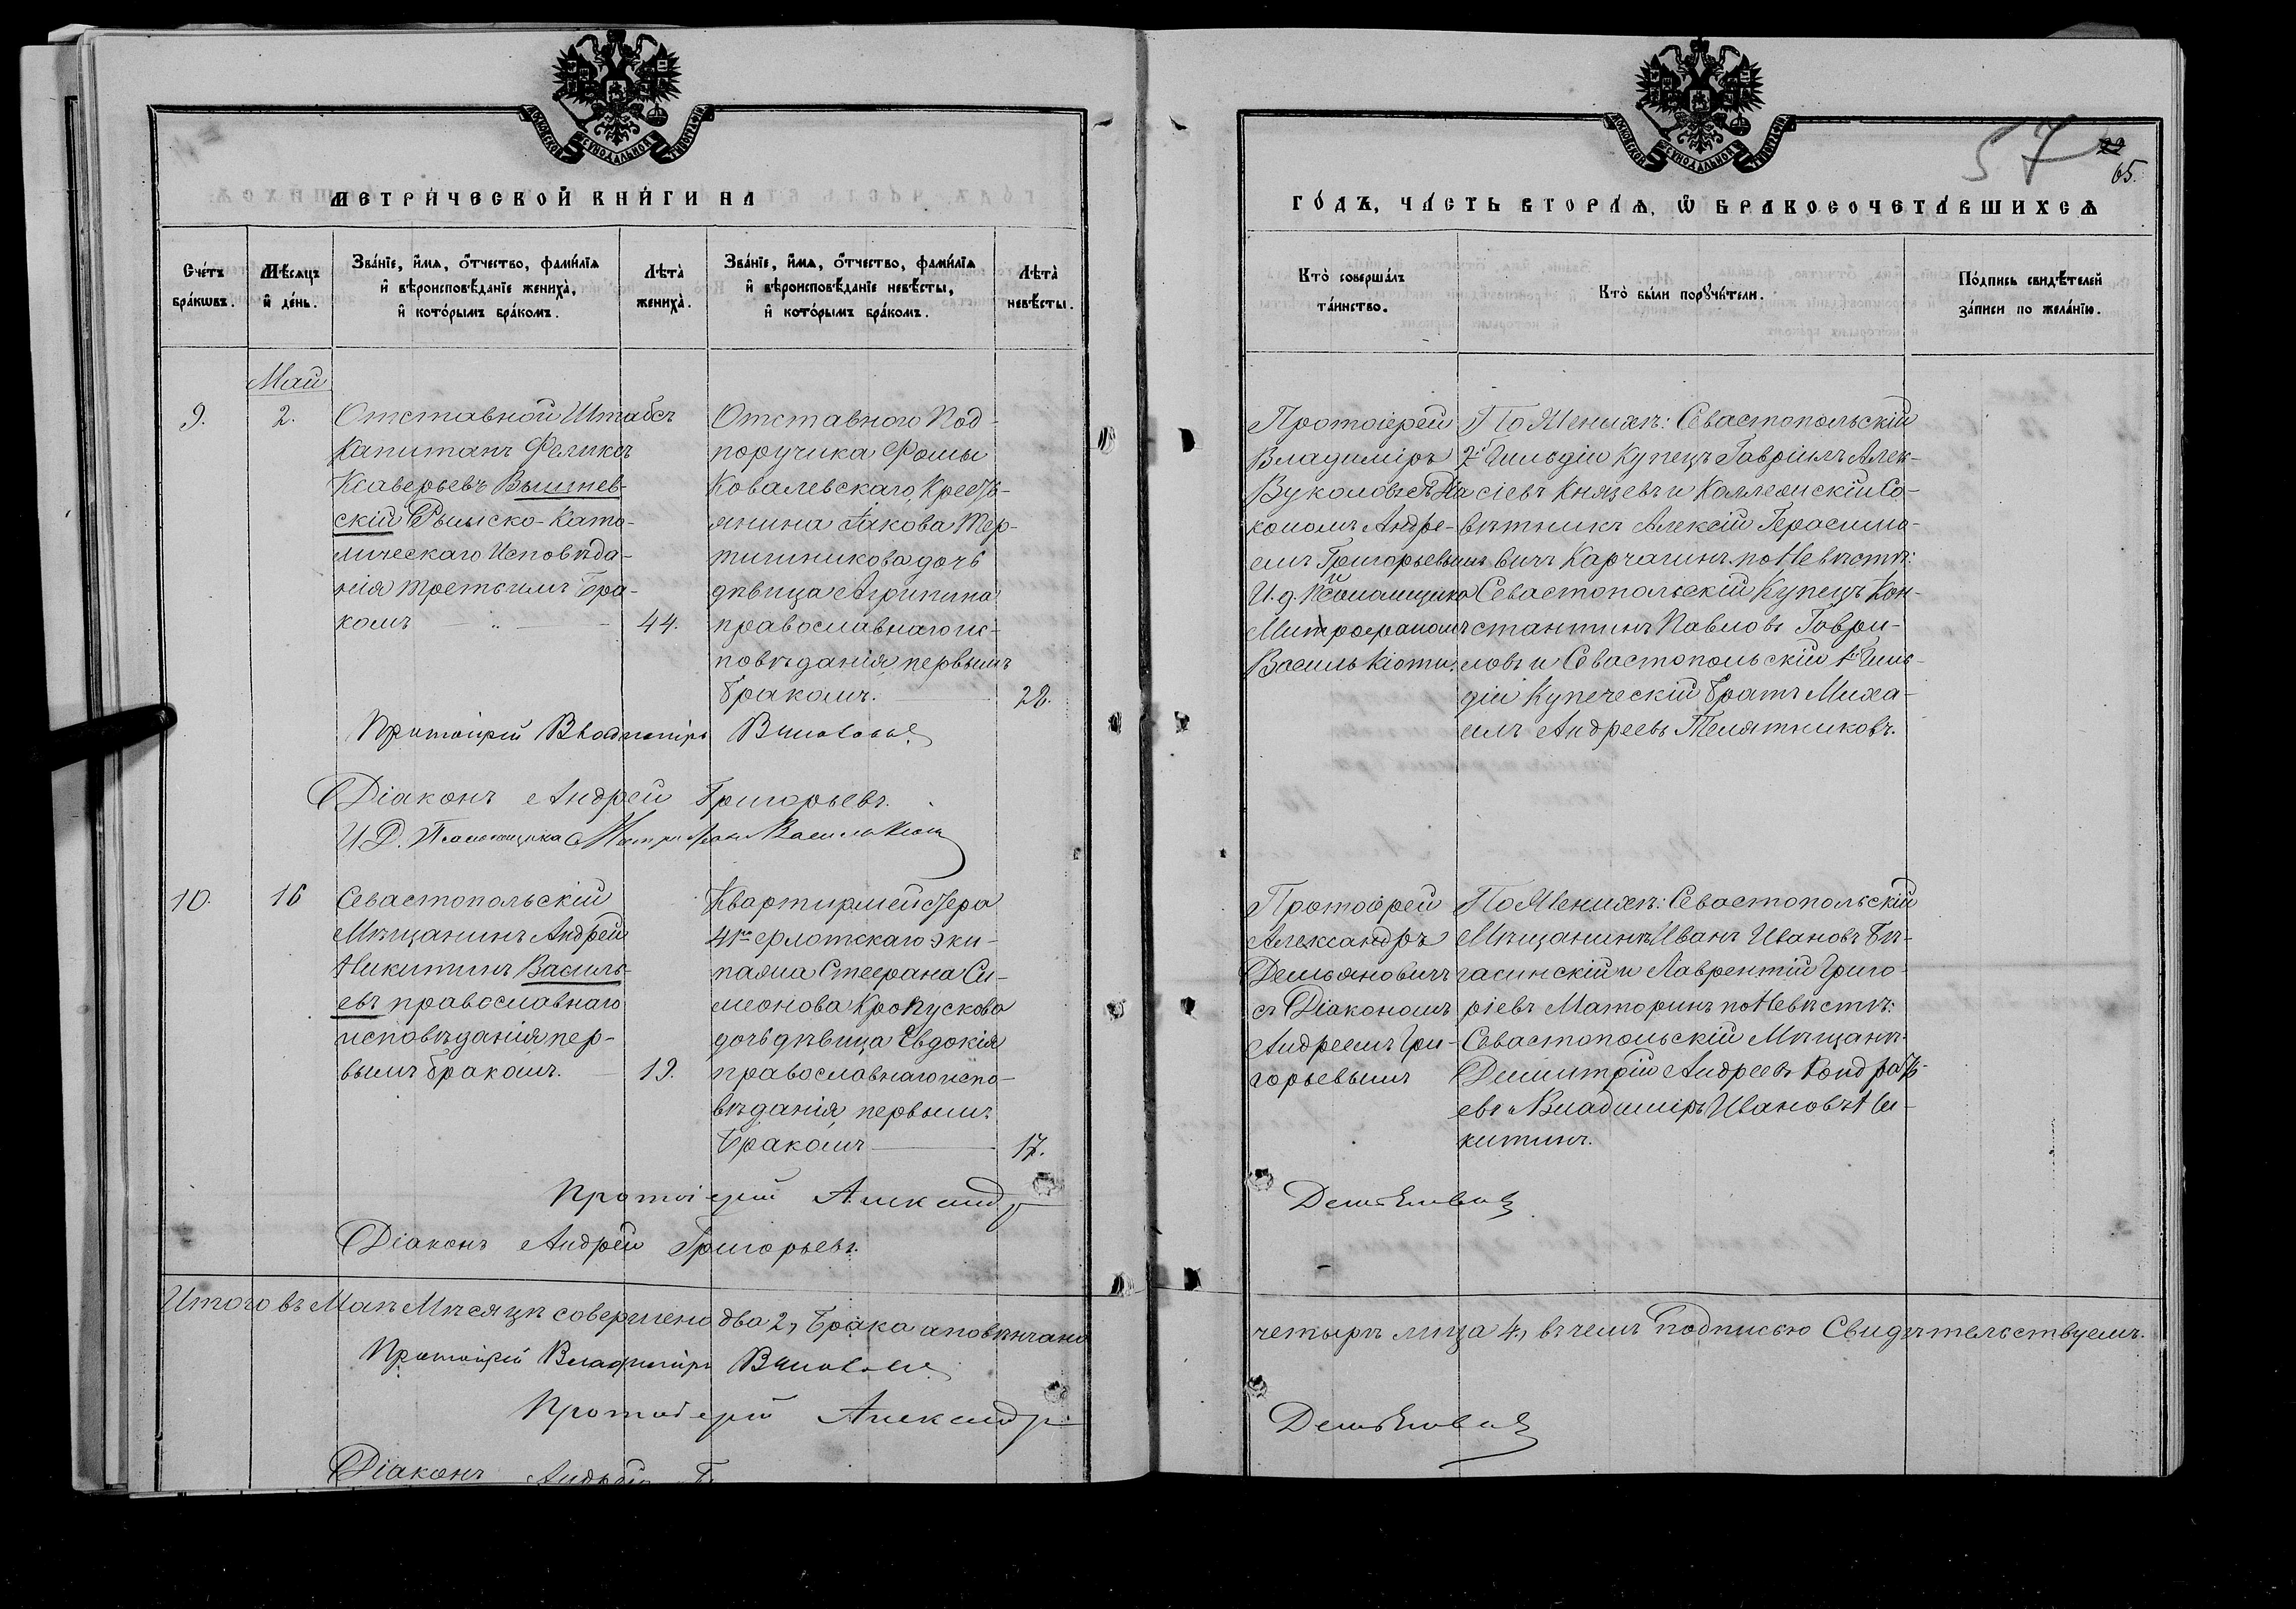 МОСКОВСКОЙ СѴНОДАЛЬНОЙ ТИПОГРАФІИ
МЕТРИ́ЧЕСКОЙ КНИ́ГИ НА
Сче́тъ бра́кѡвъ.
Мѣ́сяцъ и҆ де́нь.
Зва́нїе, и҆́мя, ѻ҆́тчество, фами́лїя
и҆ вѣроисповѣ́данїе жениха̀,
и҆ кото́рымъ бра́комъ.
Лѣта̀ жениха̀.
Зва́нїе, и҆́мя, ѻ҆́тчество, фами́лїя
и҆ вѣроисповѣ́данїе невѣ́сты,
и҆ кото́рымъ бра́комъ.
Лѣта̀ невѣ́сты.
Май
9.
2.
Отставной Штабсъ
Капитанъ Феликсъ
Ксаверьевъ Вышнев-
скій Римско-Като-
лическаго Исповѣда-
нія третьимъ бра-
комъ
44.
Отставного Под-
поручика Фомы
Ковалевскаго, Кресть-
янина Іакова Тер-
тишникова дочь
дѣвица Агрипина
православнаго ис-
повѣданія, первымъ
бракомъ.
28.
Протоіерей Владиміръ Вуколовъ
Діаконъ Андрей Григорьевъ.
И.Д. Псаломщика Митрофанъ Василькіоти
10.
16
Севастопольскій
Мѣщанинъ Андрей
Никитинъ Василь-
евъ православнаго
исповѣданія пер-
вымъ бракомъ.
19.
Квартирмейстера
41го флотскаго эки-
пажа Стефана Си-
меонова Кропускова
дочь дѣвица Евдокія
православнаго испо-
вѣданія, первымъ
бракомъ
17.
Протоіерей Александръ
Діаконъ Андрей Григорьевъ.
Итого въ Маѣ Мѣсяцѣ совершено два 2, брака а повѣнчано
Протоіерей Владиміръ Вуколовъ
Протоіерей Александръ
Діаконъ Андрей
МОСКОВСКОЙ СѴНОДАЛЬНОЙ ТИПОГРАФІИ
57
22
65.
ГО́ДЪ, ЧА́СТЬ ВТОРА́Я, Ѡ҆ БРАКОСОЧЕТА́ВШИХСЯ
Кто̀ соверша́лъ
та́инство.
Кто̀ бы́ли порꙋчи́тели.
По́дпись свидѣ́телей
за́писи по жела́нїю.
Протоіерей
Владиміръ
Вуколовъ съ Діа-
кономъ Андре-
емъ Григорьевымъ
И.д. Псаломщика
Митрофаномъ
Василькіоти.
По Женихѣ: Севастопольскій
2й Гильдіи Купецъ Гавріилъ Алек-
сіевъ Князевъ и Коллежскій Со-
вѣтникъ Алексій Герасимо-
вичъ Карчагинъ. по Невѣстѣ:
Севастопольскій Купецъ Кон-
стантинъ Павловъ Гаври-
ловъ и Севастопольскій 1й Гиль-
діи Купеческій братъ Миха-
илъ Андреевъ Телятниковъ.
Протоіерей
Александръ
Демьяновичъ
съ Діакономъ
Андреемъ Гри-
горьевымъ
По Женихѣ: Севастопольскій
Мѣщанинъ Иванъ Ивановъ Бѣ-
гасинскій и Лаврентій Григо-
ріевъ Маторинъ по Невѣстѣ:
Севастопольскій Мѣщанѣ
Димитрій Андреевъ Кондрать-
евъ и Владиміръ Ивановъ Ни-
китинъ.
Демьяновичъ
четырѣ лица 4, въ чемъ подписью Свидѣтельствуемъ.
Демьяновичъ